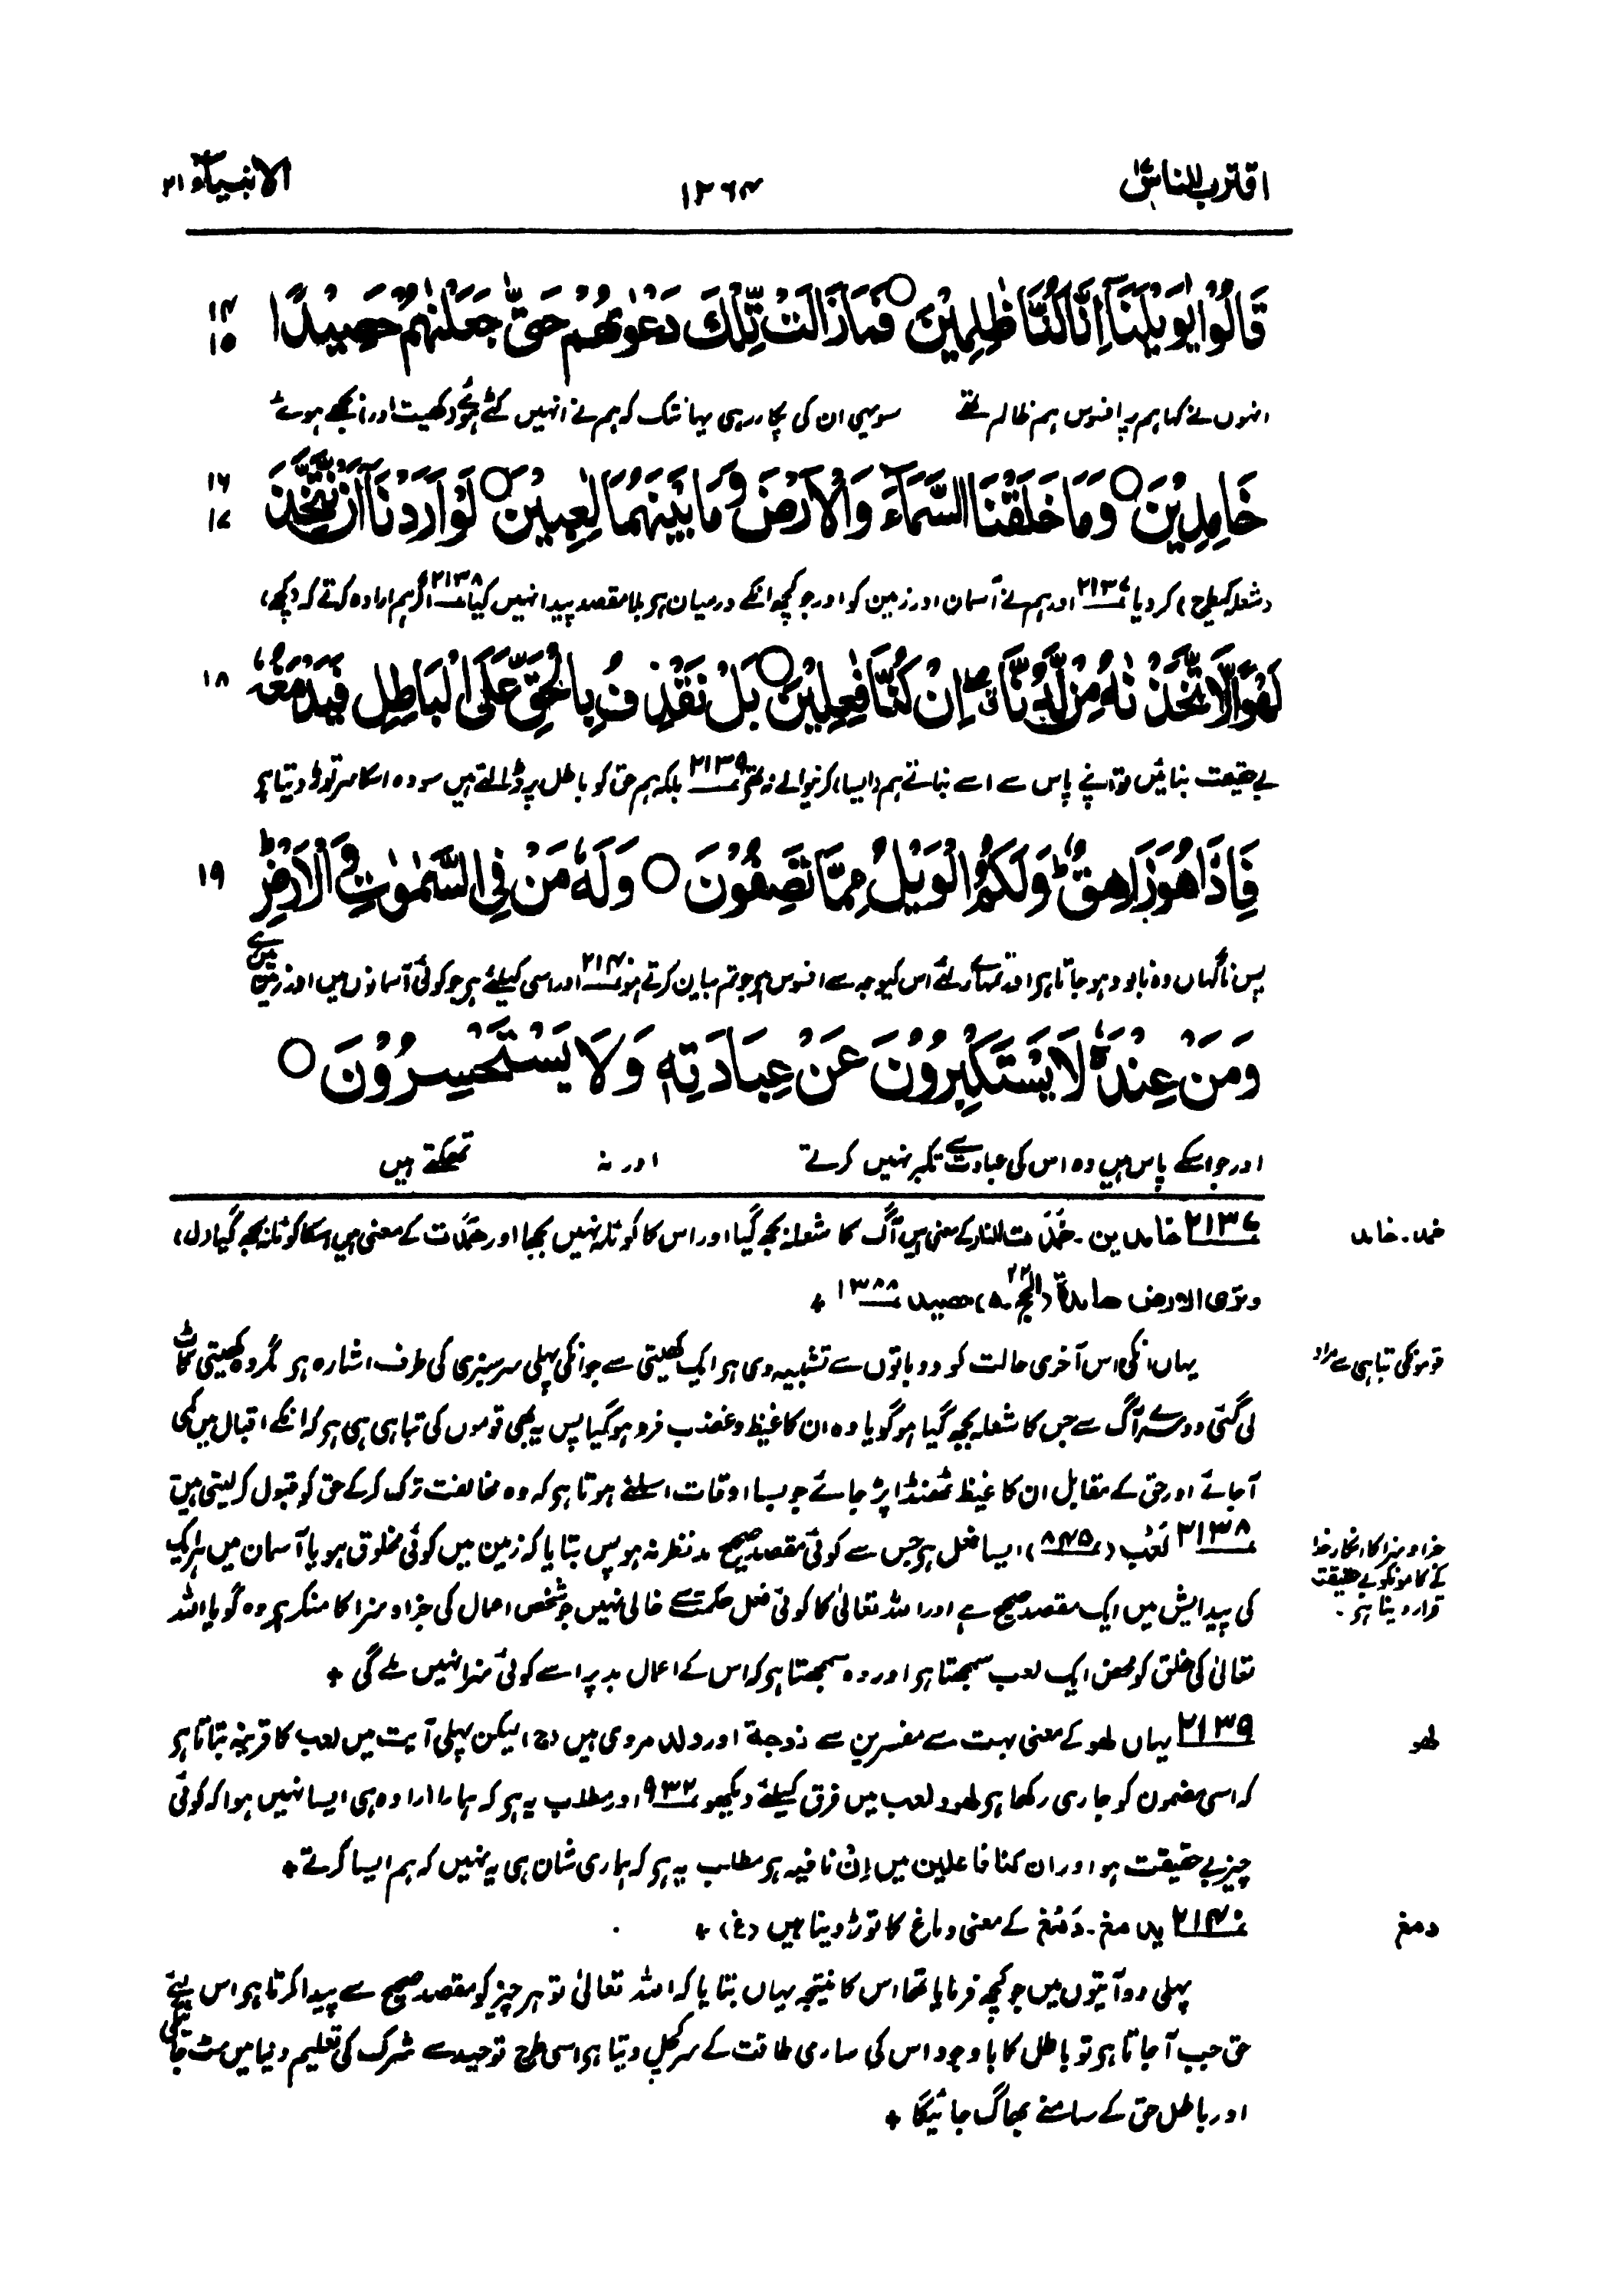 اقترب للناس ۱۷
۱۲۶۴
الانبیآء ۲۱
قَالُوْا يٰوَيْلَنَآ اِنَّا كُنَّا ظٰلِمِيْنَ ○ فَمَا زَالَتْ تِّلْكَ دَعْوٰىهُمْ حَتّٰى جَعَلْنٰهُمْ حَصِيْدًا
۱۴
۱۵
انہوں نے کہا ہم پر افسوس ہم ظالم تھے سو یہی ان کی پکار رہی یہانتک کہ ہم نے انہیں کٹے ہوئے (کھیت اور) بجھے ہوئے
خَامِدِيْنَ ○ وَمَا خَلَقْنَا السَّمَآءَ وَالْاَرْضَ وَمَا بَيْنَهُمَا لٰعِبِيْنَ ○ لَوْ اَرَدْنَآ اَنْ نَّتَّخِذَ
۱۶
۱۷
(شعلہ کیطرح) کر دیا ۲۱۳۷ اور ہم نے آسمان اور زمین کو اور جو کچھ انکے درمیان ہی بلا مقصد پیدا نہیں کیا ۲۱۳۸ اگر ہم ارادہ کرتے کہ (کچھ)
لَهْوًا لَّاتَّخَذْنٰهُ مِنْ لَّدُنَّآ اِنْ كُنَّا فٰعِلِيْنَ ○ بَلْ نَقْذِفُ بِالْحَقِّ عَلَى الْبَاطِلِ فَيَدْمَغُهٗ
۱۸
بے حقیقت بنائیں تو اپنے پاس سے اسے بناتے ہم (ایسا) کرنیوالے نہ تھے ۲۱۳۹ بلکہ ہم حق کو باطل پر ڈالتے ہیں سو وہ اسکا سر توڑ دیتا ہی
فَاِذَا هُوَ زَاهِقٌ ؕ وَلَكُمُ الْوَيْلُ مِمَّا تَصِفُوْنَ ○ وَلَهٗ مَنْ فِي السَّمٰوٰتِ وَالْاَرْضِ ؕ
۱۹
پس ناگہاں وہ نابود ہو جاتا ہی اور تمہارے لئے اس کیوجہ سے افسوس ہی جو تم بیان کرتے ہو ۲۱۴۰ اور اسی کیلئے ہی جو کوئی آسمانوں میں اور زمین میں ہے
وَمَنْ عِنْدَهٗ لَا يَسْتَكْبِرُوْنَ عَنْ عِبَادَتِهٖ وَلَا يَسْتَحْسِرُوْنَ ○
اور جو اسکے پاس ہیں وہ اس کی عبادت سے تکبر نہیں کرتے اور نہ تھکتے ہیں
خمد۔ خامد
۲۱۳۷ خامدین۔ خَمَدَت النار کے معنی ہیں آگ کا شعلہ بجھ گیا اور اس کا کوئلہ نہیں بجھا اور ھَمَدَت کے معنی ہیں اسکا کوئلہ بجھ گیا (ل)
وتری الارض ھامدۃ (الحج ۲۲۔۵) حصید ۱۳۸۸ +
قوموں کی تباہی سے مراد
یہاں انکی اس آخری حالت کو دو باتوں سے تشبیہ دی ہی ایک کھیتی سے جو انکی پہلی سرسبزی کی طرف اشارہ ہی مگر وہ کھیتی کاٹ
لی گئی دوسرے آگ سے جس کا شعلہ بجھ گیا ہو گویا وہ ان کا غیظ وغضب فرو ہو گیا پس یہ بھی قوموں کی تباہی ہی ہی کہ انکے اقبال میں کمی
آجائے اور حق کے مقابل ان کا غیظ ٹھنڈا پڑ جائے جو بسا اوقات اسلئے ہوتا ہی کہ وہ مخالفت ترک کرکے حق کو قبول کر لیتی ہیں
جزا و سزا کا انکار خدا
کے کاموں کو بے حقیقت
قرار دینا ہی۔
۲۱۳۸ لَعْب (۸۴۵) ایسا فعل ہی جس سے کوئی مقصد صحیح مد نظر نہ ہو پس بتایا کہ زمین میں کوئی مخلوق ہو یا آسمان میں ہر ایک
کی پیدایش میں ایک مقصد صحیح ہے اور اللہ تعالیٰ کا کوئی فعل حکمت سے خالی نہیں جو شخص اعمال کی جزا و سزا کا منکر ہی وہ گویا اللہ
تعالیٰ کی خلق کو محض ایک لعب سمجھتا ہی اور وہ سمجھتا ہی کہ اس کے اعمال بد پر اسے کوئی سزا نہیں ملے گی +
لھو
۲۱۳۹ یہاں لھو کے معنی بہت سے مفسرین سے زوجۃ اور ولد مروی ہیں (ج) لیکن پہلی آیت میں لعب کا قرینہ بتاتا ہی
کہ اسی مضمون کو جاری رکھا ہی لھو و لعب میں فرق کیلئے دیکھو ۹۳۲ اور مطلب یہ ہی کہ ہمارا ارادہ ہی ایسا نہیں ہوا کہ کوئی
چیز بے حقیقت ہو اور ان کنا فاعلین میں اِنْ نافیہ ہی مطلب یہ ہی کہ ہماری شان ہی یہ نہیں کہ ہم ایسا کرتے +
دمغ
۲۱۴۰ یدمغ۔ دَمْغ کے معنی دماغ کا توڑ دینا ہیں (غ) +
پہلی دو آیتوں میں جو کچھ فرمایا تھا اس کا نتیجہ یہاں بتایا کہ اللہ تعالیٰ تو ہر چیز کو مقصد صحیح سے پیدا کرتا ہی اس لیئے
حق جب آ جاتا ہی تو باطل کا باوجود اس کی ساری طاقت کے سر کچل دیتا ہی اسی طرح توحید سے شرک کی تعلیم دنیا میں مٹ جائیگی
اور باطل حق کے سامنے بھاگ جائیگا +